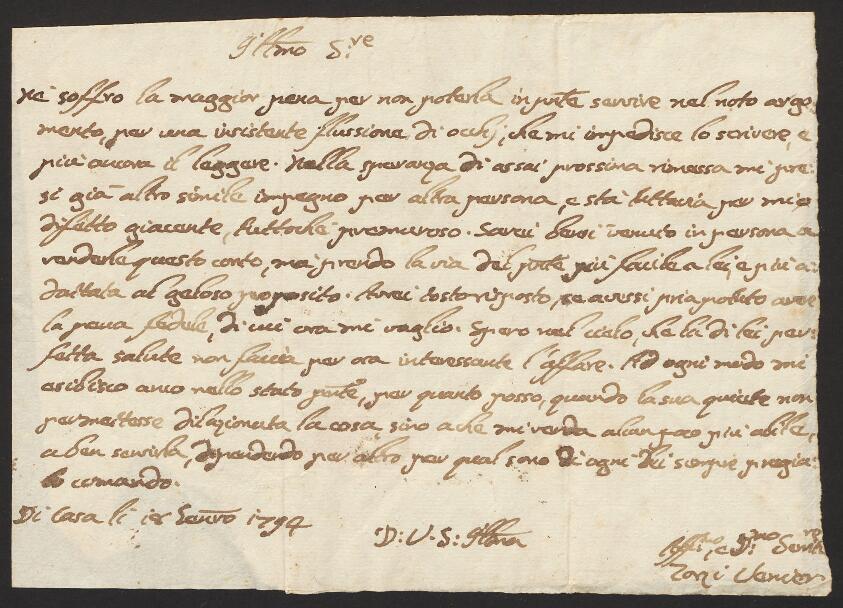 Illmo Sre
Ne soffro la maggior pena per non poterla in pnte servire nel noto argo:
mento, per una insistente flussione di occhj, che mi impedisce lo scrivere, e
più ancora il leggere. Nella speranza di assai prossima rimessa mi pre:
si già altro simile impegno per altra persona, e sta tuttavia per mio
difetto giacente, tuttochè premuroso. Sarei bensì venuto in persona a
renderle questo conto, ma prendo la via del pnte più facile a lei, e più a:
dattata al geloso proposito. Avrei tosto risposto, se avessi pria potuto aver
la penna fedele, di cui ora mi vaglio. Spero nel cielo, che la di lei per:
fetta salute non faccia per ora interessante l'affare. Ad ogni modo mi
esibisco anco nello stato pnte, per quanto posso, quando la sua quiete non
permettesse dilazionata la cosa, sino a che mi renda alcun poco più abile,
a ben servirla, dipendendo per altro per qual sono di ogni di lei sempre pregia:
to comando.
Di Casa li 18 Genro 1794
D: V. S: Illma
Affmo, e Dmo Servre
Zorzi Venier